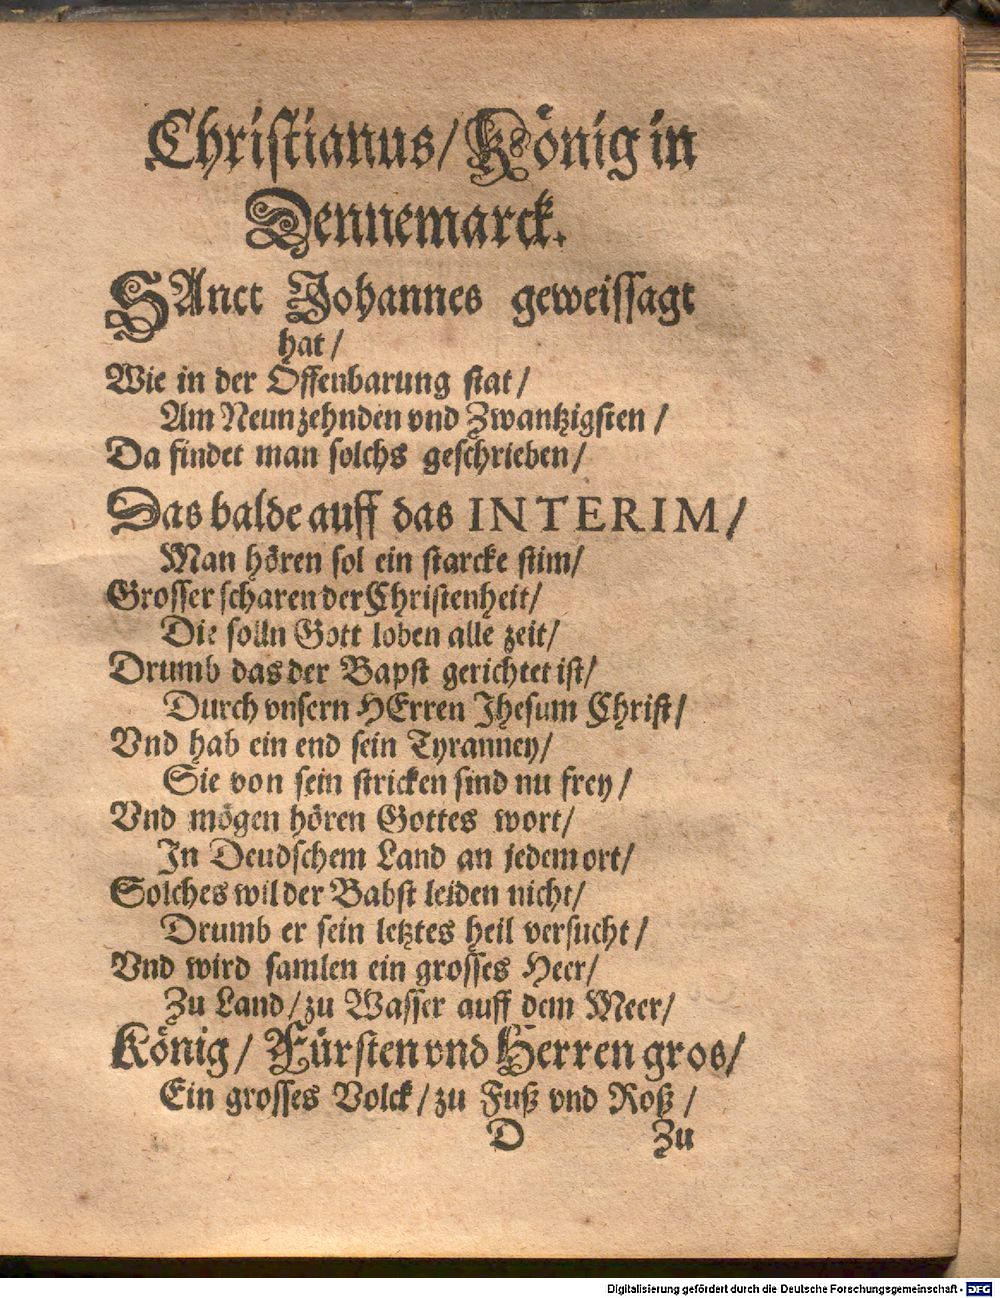 Christianus/ König in
Dennemarck.
SAnct Johannes geweissagt
hat/
Wie in der Offenbarung stat/
Am Neunzehnden vnd Zwantzigsten/
Da findet man solchs geschrieben/
Das balde auff das INTERIM/
Man hören sol ein starcke stim/
Grosser scharen der Christenheit/
Die solln Gott loben alle zeit/
Drumb das der Bapst gerichtet ist/
Durch vnsern HErren Jhesum Christ/
Vnd hab ein end sein Tyranney/
Sie von sein stricken sind nu frey/
Vnd mögen hören Gottes wort/
In Deudschem Land an jedem ort/
Solches wil der Babst leiden nicht/
Drumb er sein letztes heil versucht/
Vnd wird samlen ein grosses Heer/
Zu Land/ zu Wasser auff dem Meer/
König/ Fürsten vnd Herren gros/
Ein grosses Volck/ zu Fuß vnd Roß/
D Zu
Digitalisierung gefördert durch die Deutsche Forschungsgemeinschaft - DFG